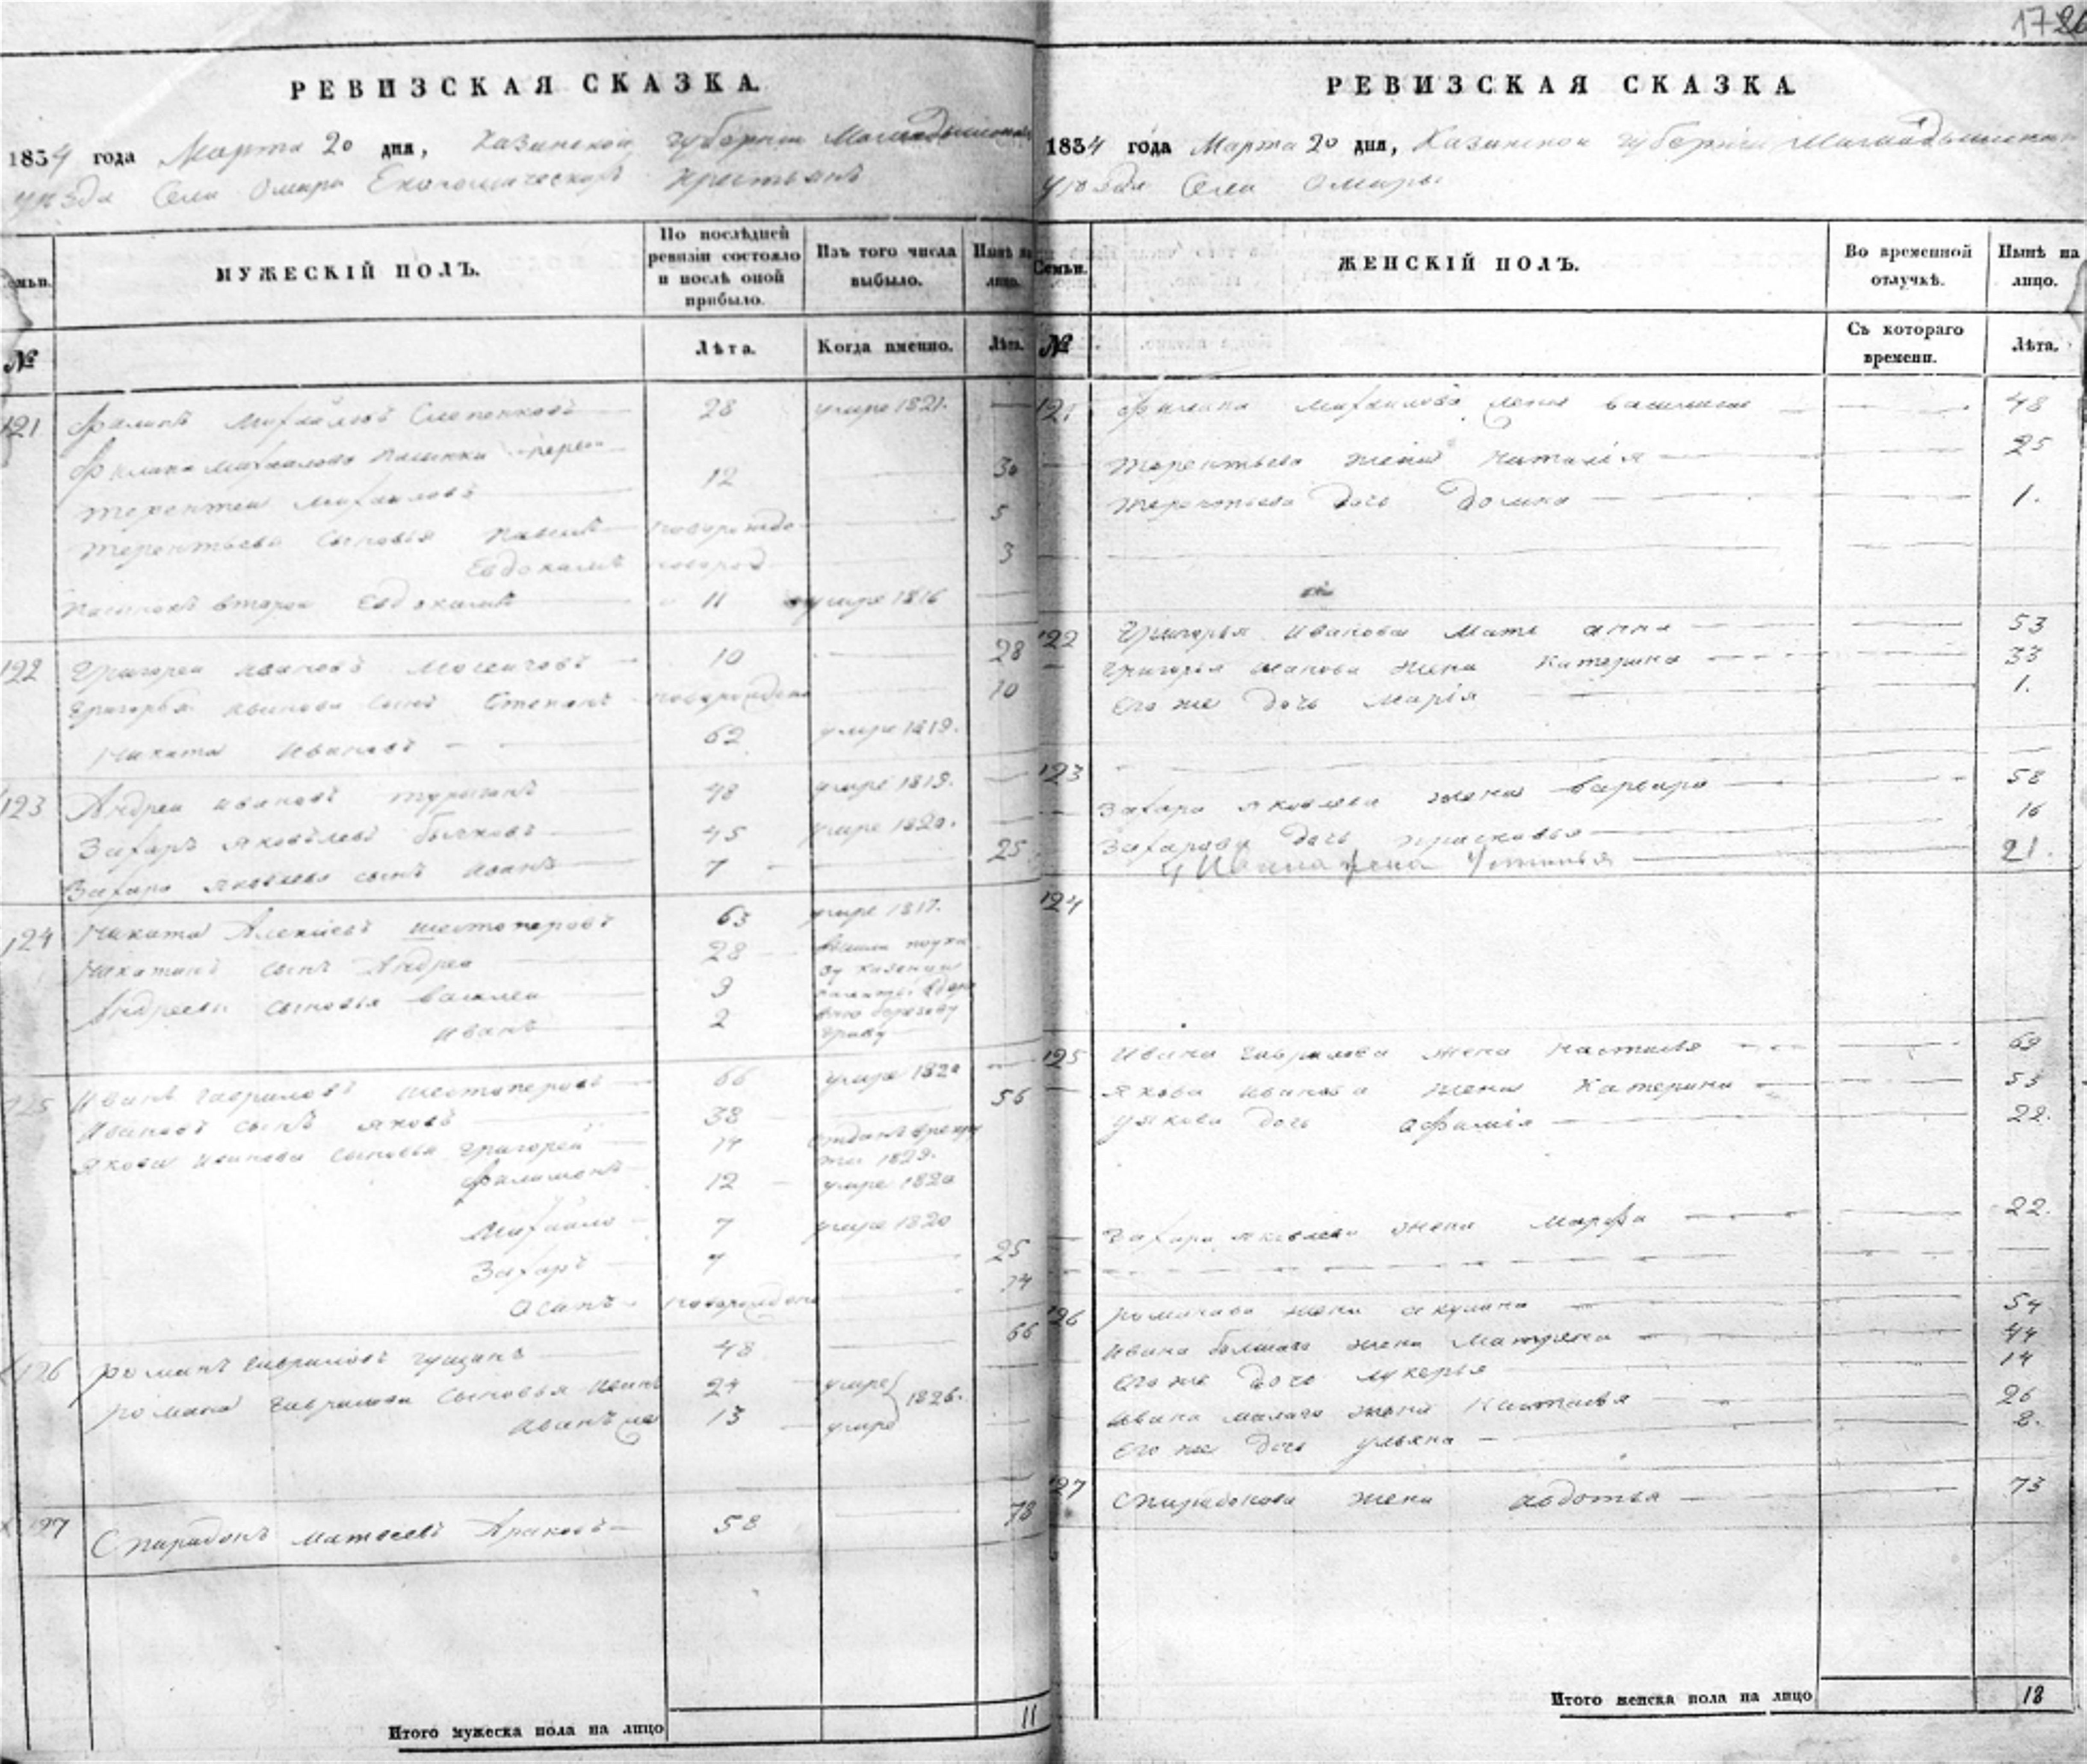 1726
РЕВИЗСКАЯ СКАЗКА.
1834 года Марта 20 дня, Казанской губернии
уезда Села Омары Економическихъ крестьянъ
Семьи.
МУЖЕСКІЙ ПОЛЪ.
По послѣдней ревизіи состояло и послѣ оной прибыло.
Изъ того числа выбыло.
Нынѣ на лицо.
№
Лѣта.
Когда именно.
Лѣта.
121 Филипъ Михайловъ 28 умре 1821. —
Филипа Михайлова
Терентей Михайловъ 12 — 30
Терентьева сыновья новорожде — 5
Евдокимъ новорож — 3
второй Евдокимъ 11 умре 1816 —
122 Григорей Ивановъ 10 — 28
Григорья Иванова сынъ Степанъ новорожденъ — 10
Никита Ивановъ — 62 умре 1819.
123 Андрей Ивановъ 48 умре 1819. —
Захаръ Яковлевъ Бычковъ 45 умре 1820. —
Захара Яковлева сынъ Иванъ 7 — 25
124 Никита Алексѣевъ Шестоперовъ 63 умре 1817.
Никитинъ сынъ Андрей 28
Андреевы сыновья Василей 9
Иванъ 2
125 Иванъ Гавриловъ Шестоперовъ 66 умре 1820 —
Ивановъ сынъ Яковъ 38 — 56
Якова Иванова сыновья Григорей 14 отданъ
1829.
Филимонъ 12 — умре 1820
Михайло 7 умре 1820
Захаръ — 25
Осипъ новорожденъ — 14
126 Романъ Гавриловъ 48 — 66
Романа Гаврилова сыновья Иванъ 24 умре 1826.
Иванъ 13 умре —
127 Спиридонъ Матвеевъ 58 — 78
Итого мужеска пола на лицо 11
РЕВИЗСКАЯ СКАЗКА
1834 года Марта 20 дня, Казанской губерніи
уезда Села Омары
Семьи.
ЖЕНСКІЙ ПОЛЪ.
Во временной отлучкѣ.
Нынѣ на лицо.
№
Съ котораго времени.
Лѣта.
121 Филипа Михайлова жена Василиса — 48
Терентьева жена Наталія — 25
Терентьева дочь Домна — 1.
122 Григорья Иванова мать Анна — 53
Григорья Иванова жена Катерина — 33
его же дочь Марія — 1.
123
Захара Яковлева жена Варвара — 58
Захарова дочь Прасковья — 16
У Ивана жена Устинья — 21.
124
125 Ивана Гаврилова жена Настасья — 69
Якова Иванова жена Катерина — 55
Якова дочь Афимія — 22.
Захара Яковлева жена Марфа — 22.
126 Романова жена Акулина — 54
Ивана большаго жена Матрена — 44
его же дочь Лукерья — 14
Ивана малаго жена Настасья — 26
его же дочь Ульяна — 8.
127 Спиридонова жена Авдотья — 73
Итого женска пола на лицо 18